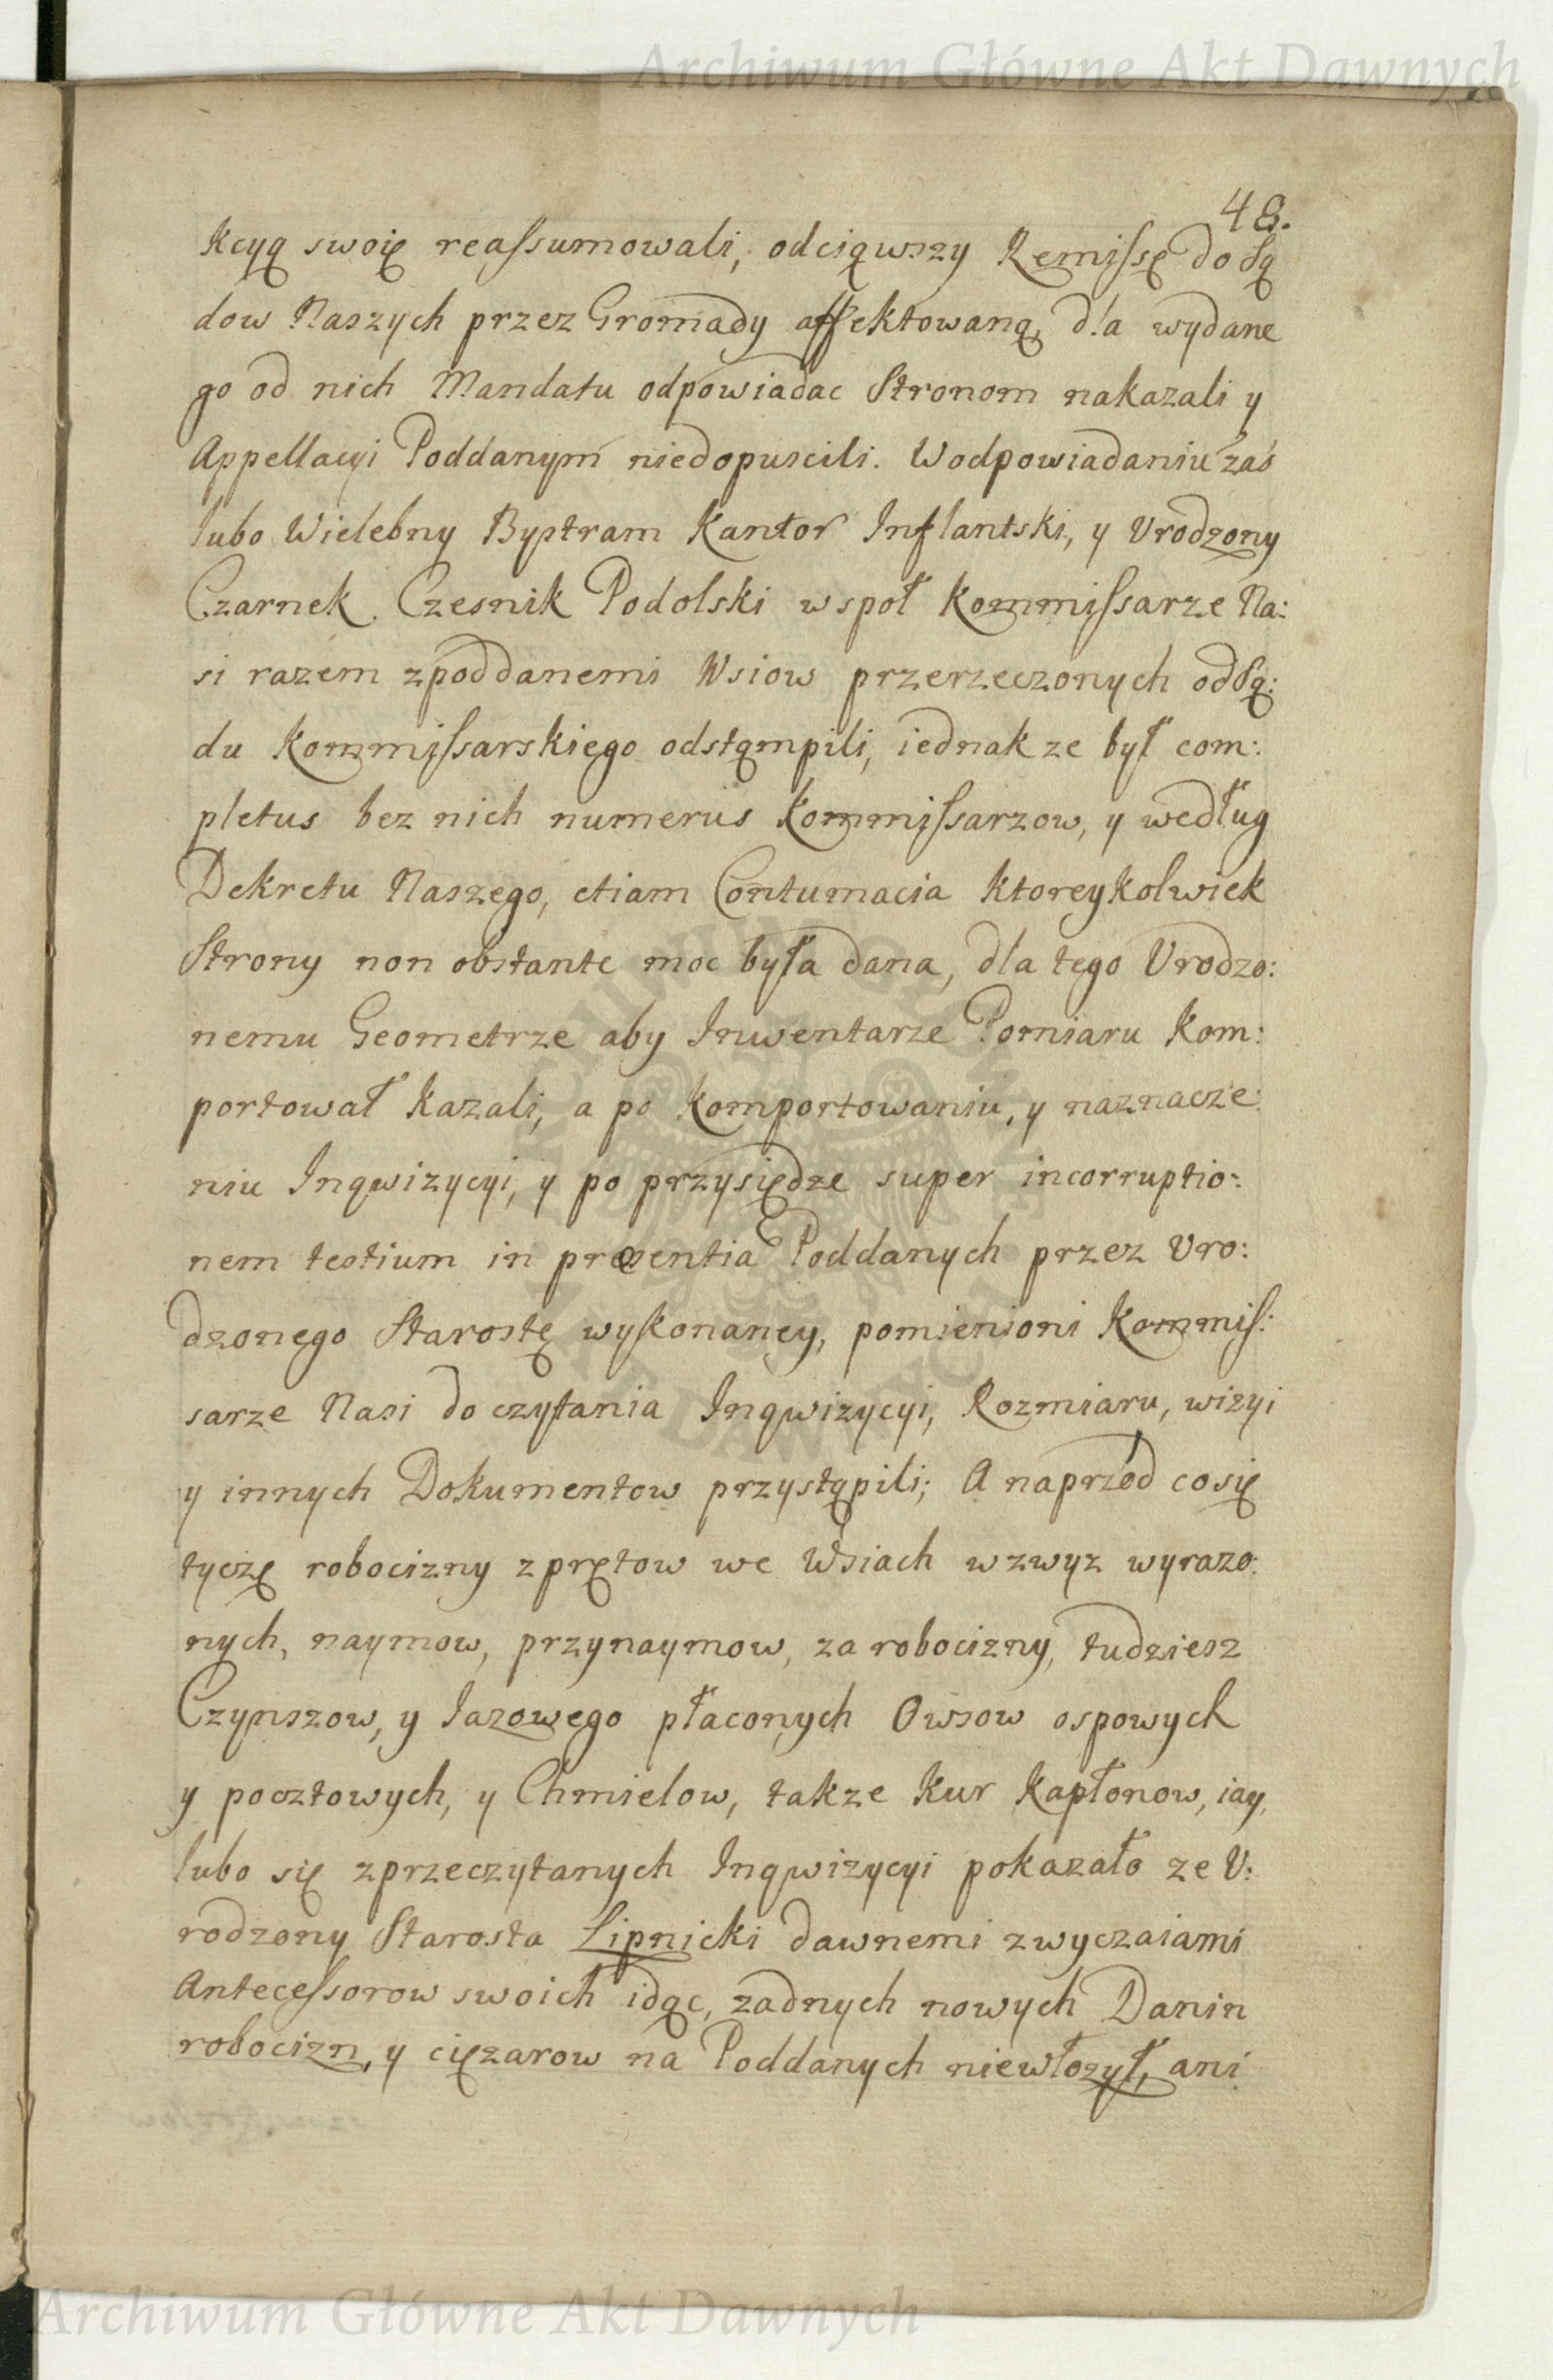 Archiwum Główne Akt Dawnych
48.
kcyą swoię reaſsumowali, odciąwszy Remiſsę do Są
dow Naszych przez Gromady affektowaną, dla wydane
go od nich Mandatu odpowiadac Stronom nakazali y
Appellacyi Poddanym niedopuscili. Wodpowiadaniu zaś
lubo Wielebny Bystram Kantor Inflantski, y Vrodzony
Czarnek Czesnik Podolski wspoł Kommiſsarze Na:
si razem zpoddanemi Wsiow przerzeczonych od Są:
du Kommiſsarskiego odstąmpili, iednak ze był com:
pletus bez nich numerus Kommiſsarzow, y według
Dekretu Naszego, etiam Contumacia ktoreykolwiek
Strony non obstante moc była dana, dla tego Vrodzo:
nemu Geometrze aby Inwentarze Pomiaru kom:
portował kazali, a po komportowaniu, y naznacze:
niu Inqwizycyi, y po przysiędze super incorruptio:
nem testium in presentia Poddanych przez Vro:
dzonego Starostę wykonaney, pomienioni Kommiſ:
sarze Nasi do czytania Inqwizycyi, Rozmiaru, wizyi
y innych Dokumentow przystąpili; A naprzod co się
tyczę robocizny zprętow we Wsiach wzwyz wyrazo:
nych, naymow, przynaymow, za robocizny, tudziesz
Czynszow, y Jazowego płaconych Owsow ospowych
y pocztowych, y Chmielow, takze Kur Kapłonow, iay,
lubo się zprzeczytanych Inqwizycyi pokazało ze V:
rodzony Starosta Lipnicki dawnemi zwyczaiami
Anteceſsorow swoich idąc, zadnych nowych Danin
robocizn, y cięzarow na Poddanych niewłozył, ani
Archiwum Główne Akt Dawnych